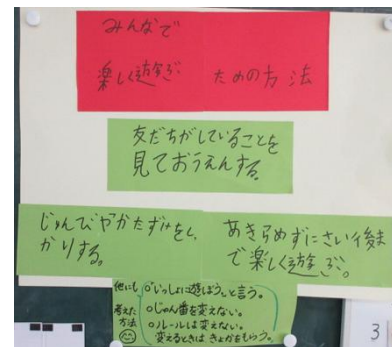 みんなで
楽しく遊ぶ ための方法
友だちがしていることを
見ておうえんする。
じゅんびやかたずけをしっ
かりする。
あきらめずにさい後ま
で楽しく遊ぶ。
他にも
考えた
方法
○いっしょに遊ぼう。と言う。
○じゅん番を変えない。
○ルールは変えない。
変えるときはきょかをもらう。
3